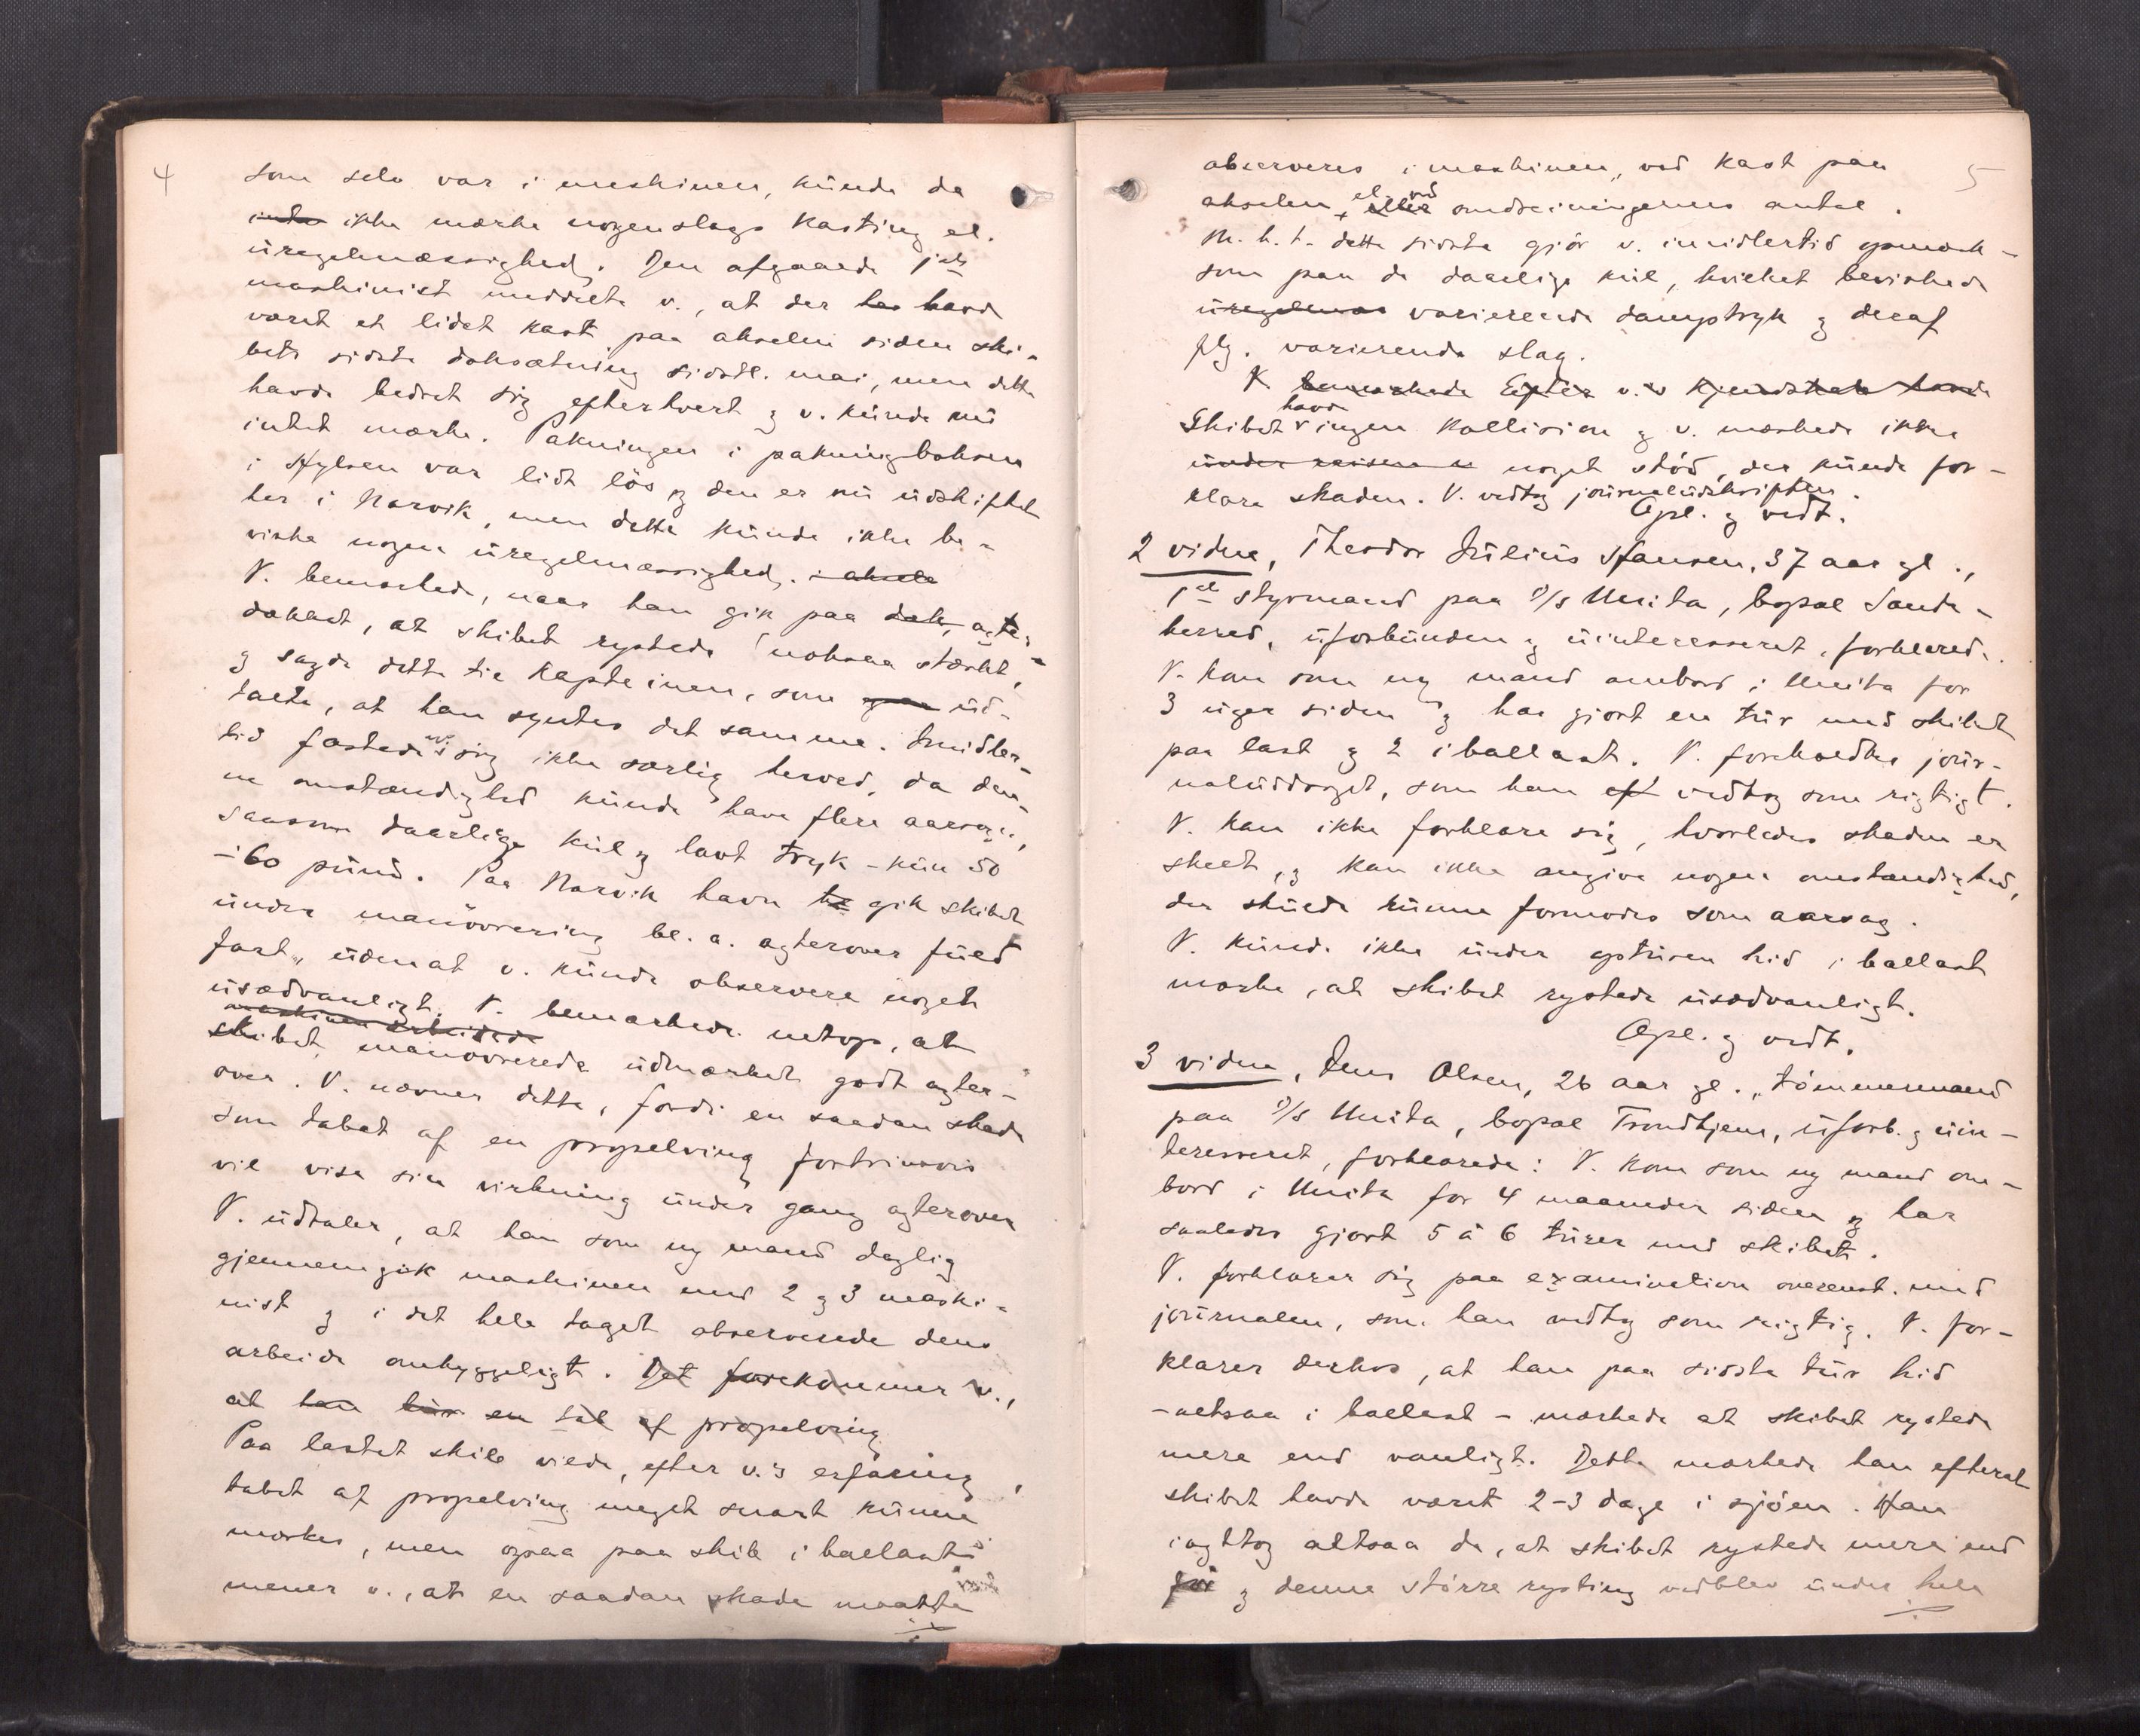 4
som selv var i maskinen, kunde da
ikke mærke nogenslags kasting el.
uregelmæssighed. Den afgaaede 1ste
maskinist meddelte v., at der havde
været et lidet kast paa akselen siden ski-
bets sidste doksætning sidstl. mai, men dette
havde bedret sig efterhvert og v. kunde nu
intet mærke. Pakningen i pakningboksen
i Hylsen var lidt løs og den er nu udskiftet
her i Narvik, men dette kunde ikke be-
virke nogen uregelmæssighed.
V. bemærkede, naar han gik paa agter-
dækket, at skibet rystede noksaa stærkt,
og sagde dette til Kapteinen, som ud-
talte, at han syntes det samme. Imidler-
tid fæstede v. sig ikke særlig herved, da den-
ne omstændighed kunde have flere aarsager,
saasom daarlige kul og lavt tryk - kun 50
- 60 pund. Paa Narvik havn gik skibet
under manøvrering bl. a. agterover fuld
fart, uden at v. kunde observere noget
usædvanligt. V. bemærkede netop, at
maskinen arbeidede
skibet manøvrerede udmærket godt agter-
over. V. nævner dette, fordi en saadan skade
som tabet af en propelving fortrinsvis
vil vise sin virkning under gang agterover
V. udtaler, at han som ny mand daglig
gjennemgik maskinen med 2 og 3 maski-
nist og i det hele taget observerede dens
arbeide omhyggeligt. Det forekommer v.,
at han en tab af propelving
Paa lastet skib vilde, efter v.'s erfaring,
tabet af propelving meget snart kunne
mærkes, men ogsaa paa skib i ballast
mener v., at en saadan skade maatte
5
observeres i maskinen, ved kast paa
akselen, el. ved eller omdreiningernes antal.
M. h. t. dette sidste gjør v. imidlertid opmærk-
som paa de daarlige kul, hvilket bevirkede
uregelmæs varierende damptryk og deraf
flg. varierende slag.
V. bemærkede Efter v.'s kjendskab havde
Skibet havde ingen kollision og v. mærkede ikke
under reisen noget stød, der kunde for-
klare skaden. V. vedtog journaludskriften.
Opl. og vedt.
2 vidne, Theodor Julius Hansen, 37 aar gl.,
1ste styrmand paa D/S Unita, bopæl Sande-
herred, uforbunden og uinteresseret, forklarede.
V. kom som ny mand ombord i Unita for
3 uger siden og har gjort en tur med skibet
paa last og 2 i ballast. V. foreholdtes jour-
naluddraget, som han vedtog som rigtigt.
V. kan ikke forklare sig, hvorledes skaden er
skeet, og kan ikke angive nogen omstændighed,
der skulde kunne formodes som aarsag.
V. kunde ikke under opturen hid i ballast
mærke, at skibet rystede usædvanligt.
Opl. og vedt.
3 vidne, Jens Olsen, 26 aar gl., tømmermand
paa D/S Unita, bopæl Trondhjem, uforb. og uin-
teresseret, forklarede: V. kom som ny mand om-
bord i Unita for 4 maaneder siden og har
saaledes gjort 5 à 6 turer med skibet.
V. forklarer sig paa examination overenst. med
journalen, som han vedtog som rigtig. V. for-
klarer derhos, at han paa sidste tur hid
- altsaa i ballast - mærkede at skibet rystede
mere end vanligt. Dette mærkede han efterat
skibet havde været 2-3 dage i sjøen. Han
iagttog altsaa da, at skibet rystede mere end
før og denne større rysting vedblev under hele